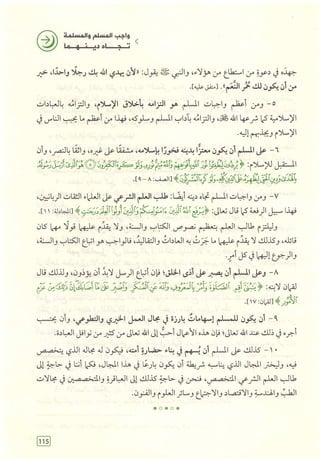 واجب المسلم والمسلمة
تجـــاه ديـنـهـمـا
جهدَه في دعوة من استطاع من هؤلاء، والنبي ﷺ يقول: «لأن يهدي الله بك رجلًا واحدًا، خير
من أن يكون لك حُمْر النَّعَم». [متفق عليه].
٥- ومن أعظم واجبات المسلم هو التزامه بأخلاق الإسلام، والتزامُه بالعبادات
كما شرعها الله ﷻ، والتزامُه بآداب المسلم وسلوكه، فهذا من أعظم ما يحبب الناس في
الإسلام ويجذبهم إليه.
٦- على المسلم أن يكون معتزًّا بدينه فخورًا بإسلامه، مشفقًا على غيره، واثقًا بالنصر، وأن
المستقبل للإسلام: ﴿يُرِيدُونَ لِيُطْفِئُوا نُورَ اللَّهِ بِأَفْوَاهِهِمْ وَاللَّهُ مُتِمُّ نُورِهِ وَلَوْ كَرِهَ الْكَافِرُونَ ٨ هُوَ الَّذِي أَرْسَلَ رَسُولَهُ
بِالْهُدَى وَدِينِ الْحَقِّ لِيُظْهِرَهُ عَلَى الدِّينِ كُلِّهِ وَلَوْ كَرِهَ الْمُشْرِكُونَ﴾ [الصف: ٨-٩].
٧- ومن واجبات المسلم تجاه دينه أيضًا: طلب العلم الشرعي على العلماء الثقات الربانيين،
فهذا سبيل الرفعة كما قال تعالى: ﴿يَرْفَعِ اللَّهُ الَّذِينَ آمَنُوا مِنْكُمْ وَالَّذِينَ أُوتُوا الْعِلْمَ دَرَجَاتٍ﴾ [المجادلة: ١١].
وليلتزم طالب العلم بتعظيم نصوص الكتاب والسنة، ولا يقدِّم عليها قولًا مهما كان
قائله، وكذلك لا يقدم عليها ما جَرَتْ به العادات والتقاليد، فالواجب هو اتباع الكتاب والسنة،
والرجوع إليهما في كل أمر.
٨- وعلى المسلم أن يصبر على أذى الخلق؛ فإن أتباع الرسل لابدَّ أن يؤذون، ولذلك قال
لقمان لابنه: ﴿يَا بُنَيَّ أَقِمِ الصَّلَاةَ وَأْمُرْ بِالْمَعْرُوفِ وَانْهَ عَنِ الْمُنْكَرِ وَاصْبِرْ عَلَى مَا أَصَابَكَ إِنَّ ذَلِكَ مِنْ عَزْمِ
الْأُمُورِ﴾ [لقمان: ١٧].
٩- أن يكون للمسلم إسهاماتٌ بارزة في مجال العمل الخيري والتطوعي، وأن يحتسب
أجره في ذلك عند الله تعالى؛ فإن هذه الأعمال أحبُّ إلى الله تعالى من كثير من نوافل العبادة.
١٠- كذلك على المسلم أن يُسهم في بناء حضارة أمته، فيكون له مجاله الذي يتخصص
فيه، وليختر المجال الذي يناسبه شريطة أن يكون بارعًا في هذا المجال، فكما أننا في حاجةٍ إلى
طالب العلم الشرعي المتخصص، فنحن في حاجة كذلك إلى العباقرة والمتخصصين في مجالات
الطبِّ والهندسةِ والاقتصادِ والاجتماعِ وسائر العلوم والفنون.
115